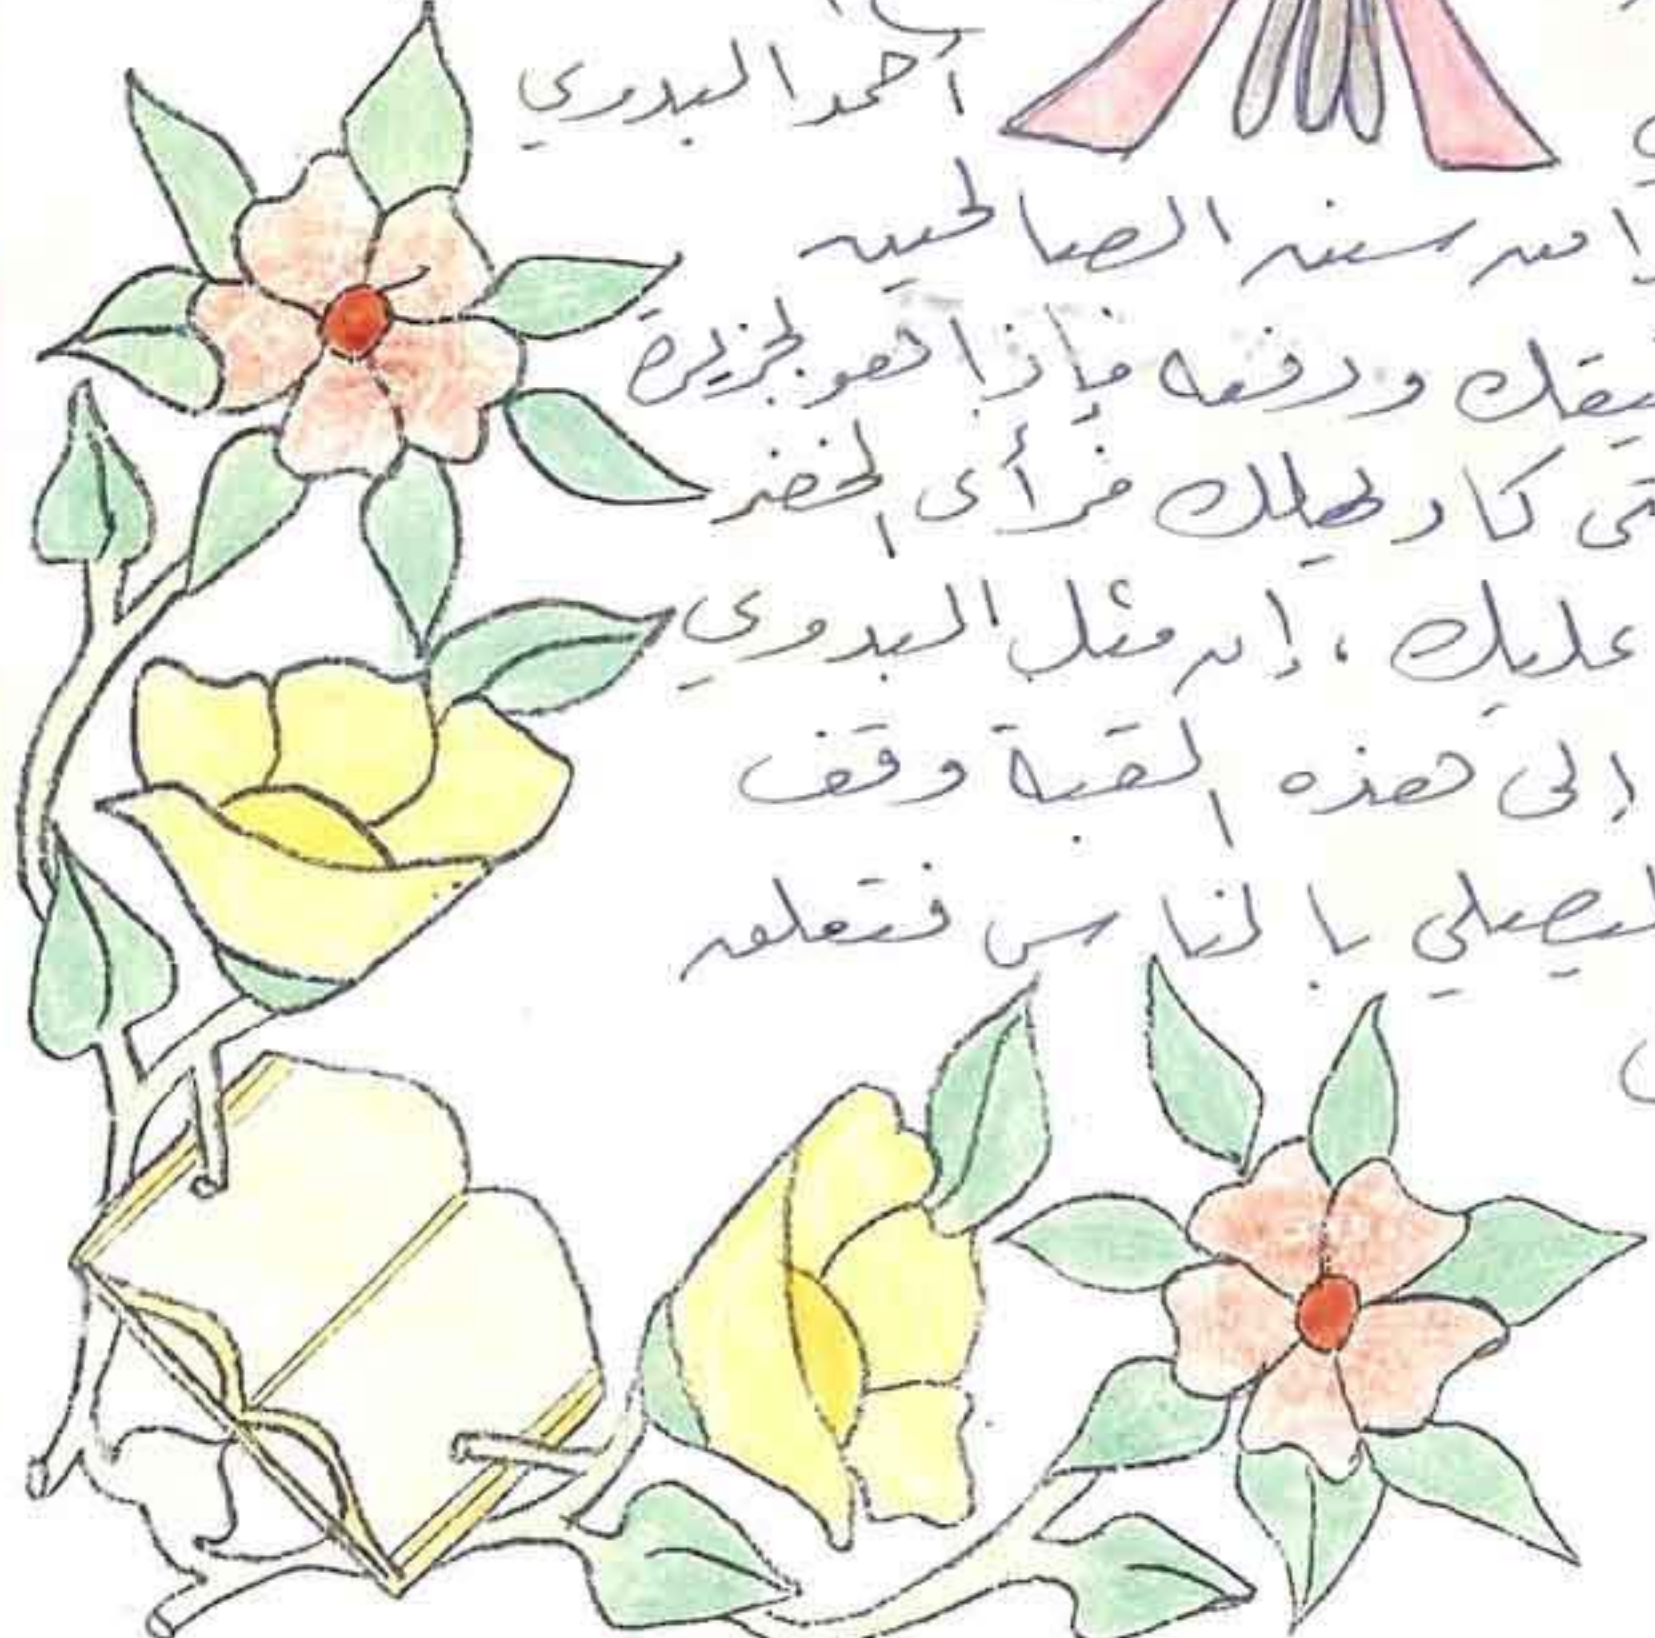 أحمد البدوي
من سنن الصالحين
ودفعه فإذا هو بجزيرة
كاد يهلك فرأى الخضر
عليك ، إن مثل البدوي
إلى هذه القبة وقف
ليصلي بالناس فتعلق